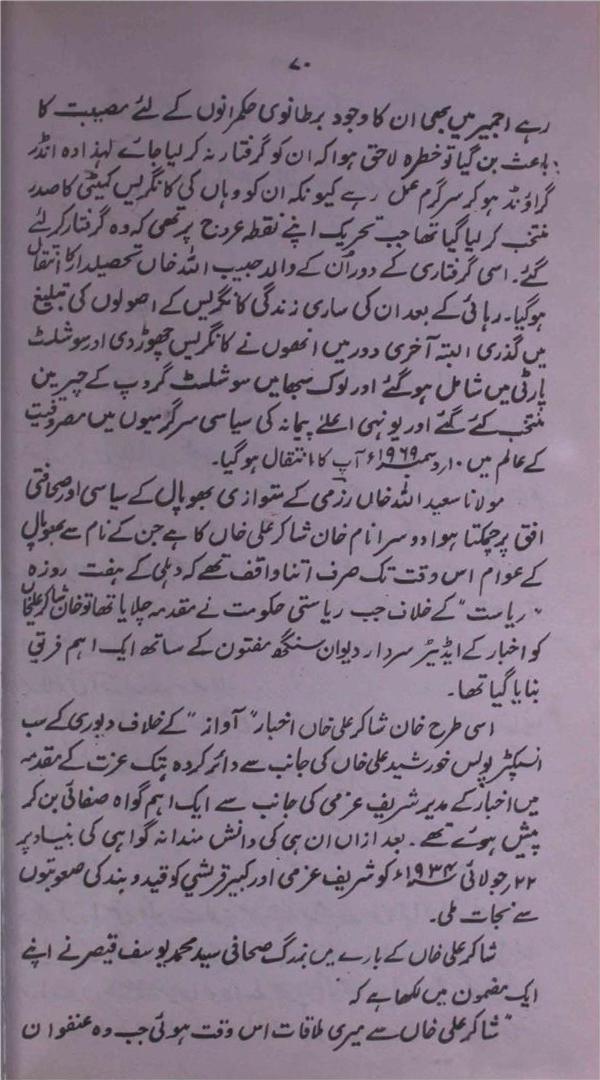 ۷۰
رہے اجمیر میں بھی ان کا وجود برطانوی حکمرانوں کے لئے مصیبت کا
باعث بن گیا تو خطرہ لاحق ہوا کہ ان کو گرفتار نہ کر لیا جائے لہٰذا وہ انڈر
گراؤنڈ ہوکر سرگرم عمل رہے کیونکہ ان کو وہاں کی کانگریس کمیٹی کا صدر
منتخب کر لیا گیا تھا جب تحریک اپنے نقطہ عروج پر تھی کہ وہ گرفتار کر لئے
گئے۔ اسی گرفتاری کے دور ان کے والد حبیب اللہ خاں تحصیلدار کا انتقال
ہوگیا۔ رہائی کے بعد ان کی ساری زندگی کانگریس کے اصولوں کی تبلیغ
میں گذری البتہ آخری دور میں انھوں نے کانگریس چھوڑ دی اور سوشلسٹ
پارٹی میں شامل ہوگئے اور لوک سبھا میں سوشلسٹ گروپ کے چیرمین
منتخب کئے گئے اور یونہی اعلےٰ پیمانہ کی سیاسی سرگرمیوں میں مصروفیت
کے عالم میں ۱۰ر دسمبر ۱۹۶۹ء آپ کا انتقال ہوگیا۔
مولانا سعید اللہ خاں رزمی کے متوازی بھوپال کے سیاسی اور صحافتی
افق پر چمکتا ہوا دوسرا نام خان شاکر علی خاں کا ہے جن کے نام سے بھوپال
کے عوام اس وقت تک صرف اتنا واقف تھے کہ دہلی کے ہفت روزہ
"ریاست" کے خلاف جب ریاستی حکومت نے مقدمہ چلایا تھا تو خان شاکر علیخاں
کو اخبار کے ایڈیٹر سردار دیوان سنگھ مفتون کے ساتھ ایک اہم فریق
بنایا گیا تھا۔
اسی طرح خان شاکر علی خاں اخبار "آواز" کے خلاف دیوری کے سب
انسپکٹر پولس خورشید علی خاں کی جانب سے دائر کردہ ہتک عزت کے مقدمہ
میں اخبار کے مدیر شریف عزمی کی جانب سے ایک اہم گواہ صفائی بن کر
پیش ہوئے تھے۔ بعد ازاں ان ہی کی دانش مندانہ گواہی کی بنیاد پر
۲۲ر جولائی ۱۹۳۴ء کو شریف عزمی اور کبیر قریشی کو قید و بند کی صعوبتوں
سے نجات ملی۔
شاکر علی خاں کے بارے میں بزرگ صحافی سید محمد یوسف قیصر نے اپنے
ایک مضمون میں لکھا ہے کہ
"شاکر علی خاں سے میری ملاقات اس وقت ہوئی جب وہ عنفوان